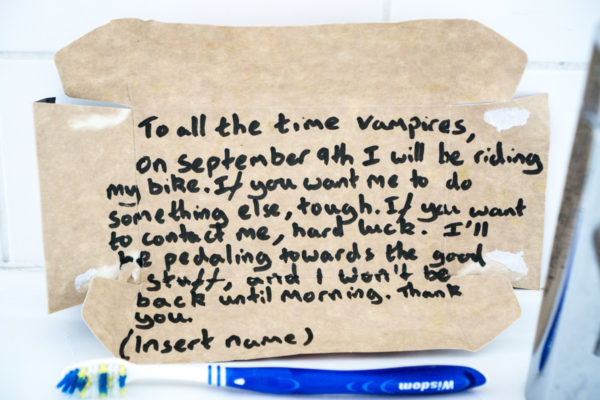 To all the time vampires,
on september 9th I will be riding
my bike. If you want me to do
something else, tough. If you want
to contact me, hard luck. I'll
be pedaling towards the good
stuff, and I won't be
back until morning. Thank
you.
(Insert name)
Wisdom